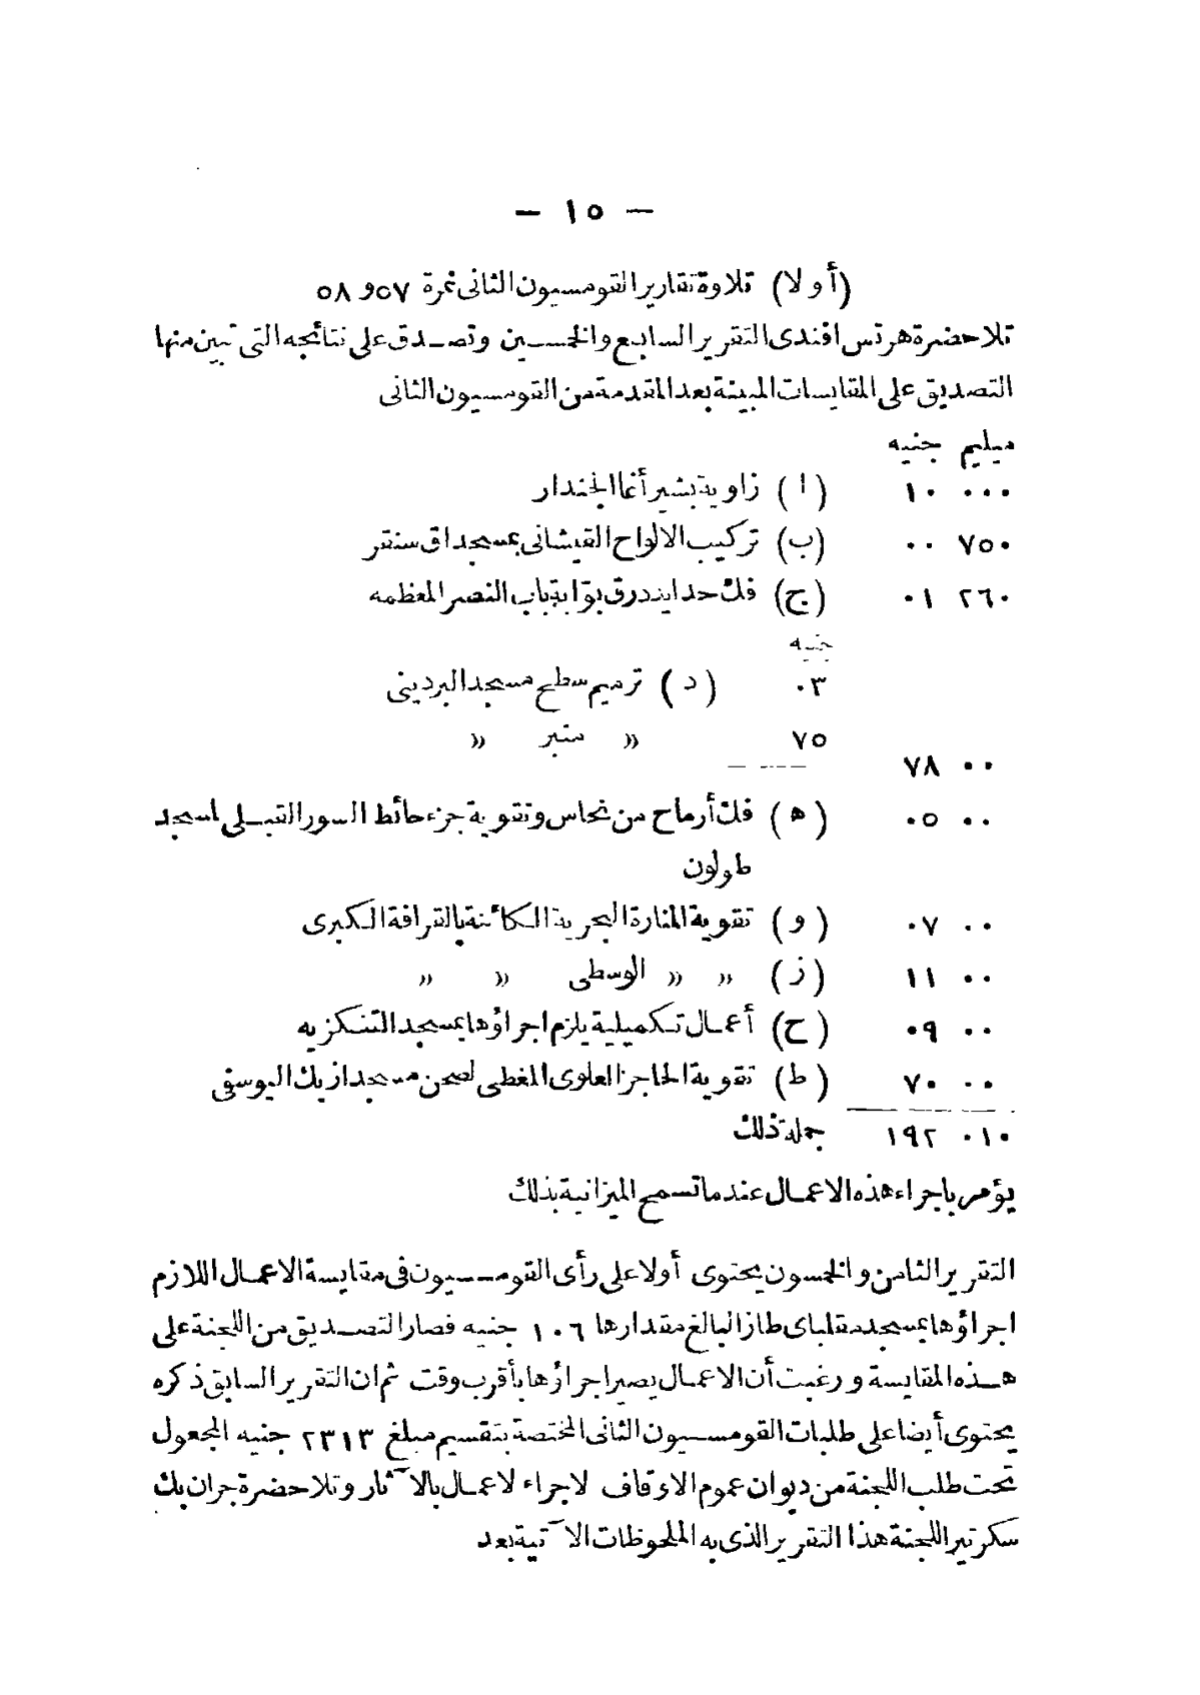 — ١٥ —
(أولا) تلاوة تقارير القومسيون الثانى نمرة ٥٧ و ٥٨
تلا حضرة هرتس افندى التقرير السابع والخمسين وتصدق على نتائجه التى تبين منها
التصديق على المقايسات المبينة بعد المقدمة من القومسيون الثانى
ميليم جنيه
٠٠٠ ١٠ (ا) زاوية بشير أغا الجندار
٧٥٠ ٠٠ (ب) تركيب الالواح القيشانى بمسجد اق سنقر
٢٦٠ ٠١ (ج) فك حدايد درق بوّابة باب النصر المغطمه
جنيه
٠٣ (د) ترميم سطح مسجد البردينى
٧٥ » منبر »
٠٠ ٧٨
٠٠ ٠٥ (ه) فك أرماح من نحاس وتقوية جزء حائط السور القبلى لمسجد
طولون
٠٠ ٠٧ (و) تقوية المنارة البحرية الكائنة بالقرافة الكبرى
٠٠ ١١ (ز) » » الوسطى » »
٠٠ ٠٩ (ح) أعمال تكميلية يلزم اجراؤها بمسجد التنكزيه
٠٠ ٧٠ (ط) تقوية الحاجز العلوى المغطى لصحن مسجد ازبك اليوسفى
٠١٠ ١٩٢ جملة ذلك
يؤمر باجراء هذه الاعمال عندما تسمح الميزانية بذلك
التقرير الثامن والخمسون يحتوى أولا على رأى القومسيون فى مقايسة الاعمال اللازم
اجراؤها بمسجد مقلباى طاز البالغ مقدارها ١٠٦ جنيه فصار التصديق من اللجنة على
هذه المقايسة ورغبت أن الاعمال يصير اجراؤها بأقرب وقت ثم ان التقرير السابق ذكره
يحتوى أيضا على طلبات القومسيون الثانى المختصة بتقسيم مبلغ ٢٣١٣ جنيه المجعول
تحت طلب اللجنة من ديوان عموم الاوقاف لاجراء لاعمال بالآثار وتلا حضرة جران بك
سكرتير اللجنة هذا التقرير الذى به الملحوظات الآتية بعد